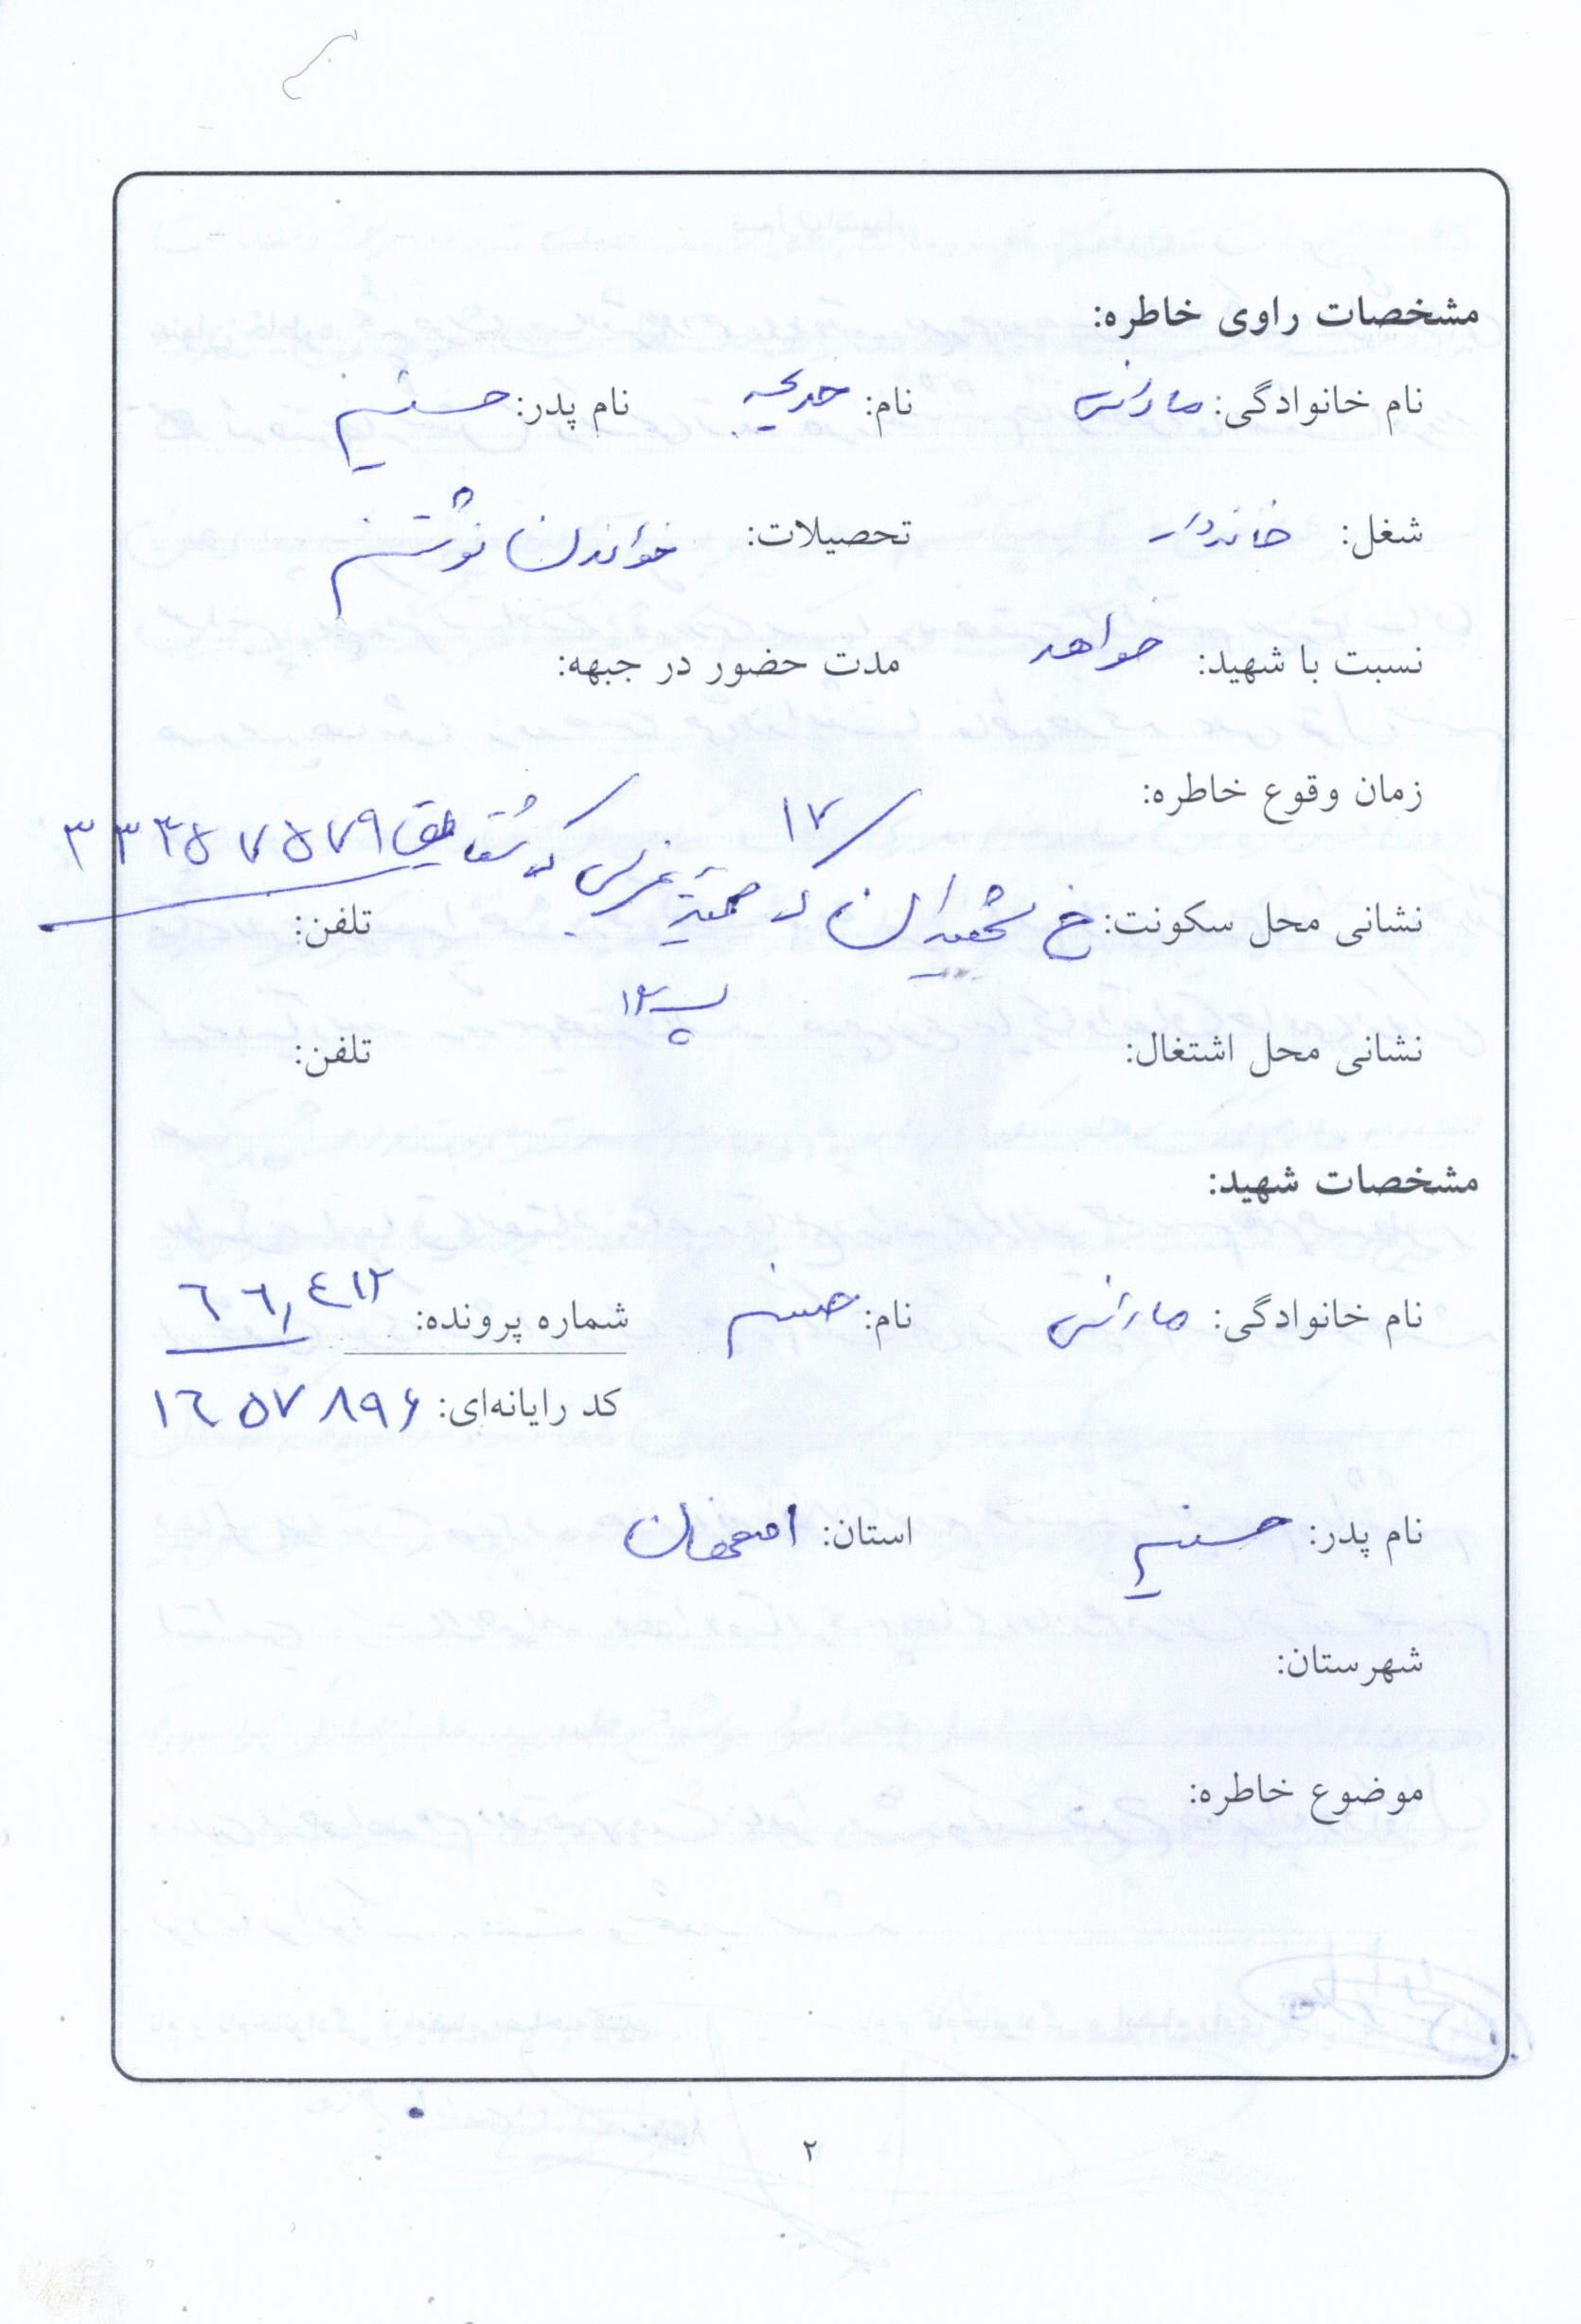 مشخصات راوی خاطره:
نام خانوادگی: مارانی نام: خدیجه نام پدر: حسین
شغل: خانه‌دار تحصیلات: خواندن نوشتن
نسبت با شهید: خواهر مدت حضور در جبهه:
زمان وقوع خاطره:
۱۷
نشانی محل سکونت: خ شهیدان ک شقایق تلفن: ۳۳۳۵۷۵۷۹
پ ۱۳
نشانی محل اشتغال: تلفن:
مشخصات شهید:
نام خانوادگی: مارانی نام: حسن شماره پرونده: ۶۶٫۴۱۲
کد رایانه‌ای: ۱۶۵۷۸۹۶
نام پدر: حسین استان: اصفهان
شهرستان:
موضوع خاطره:
۲